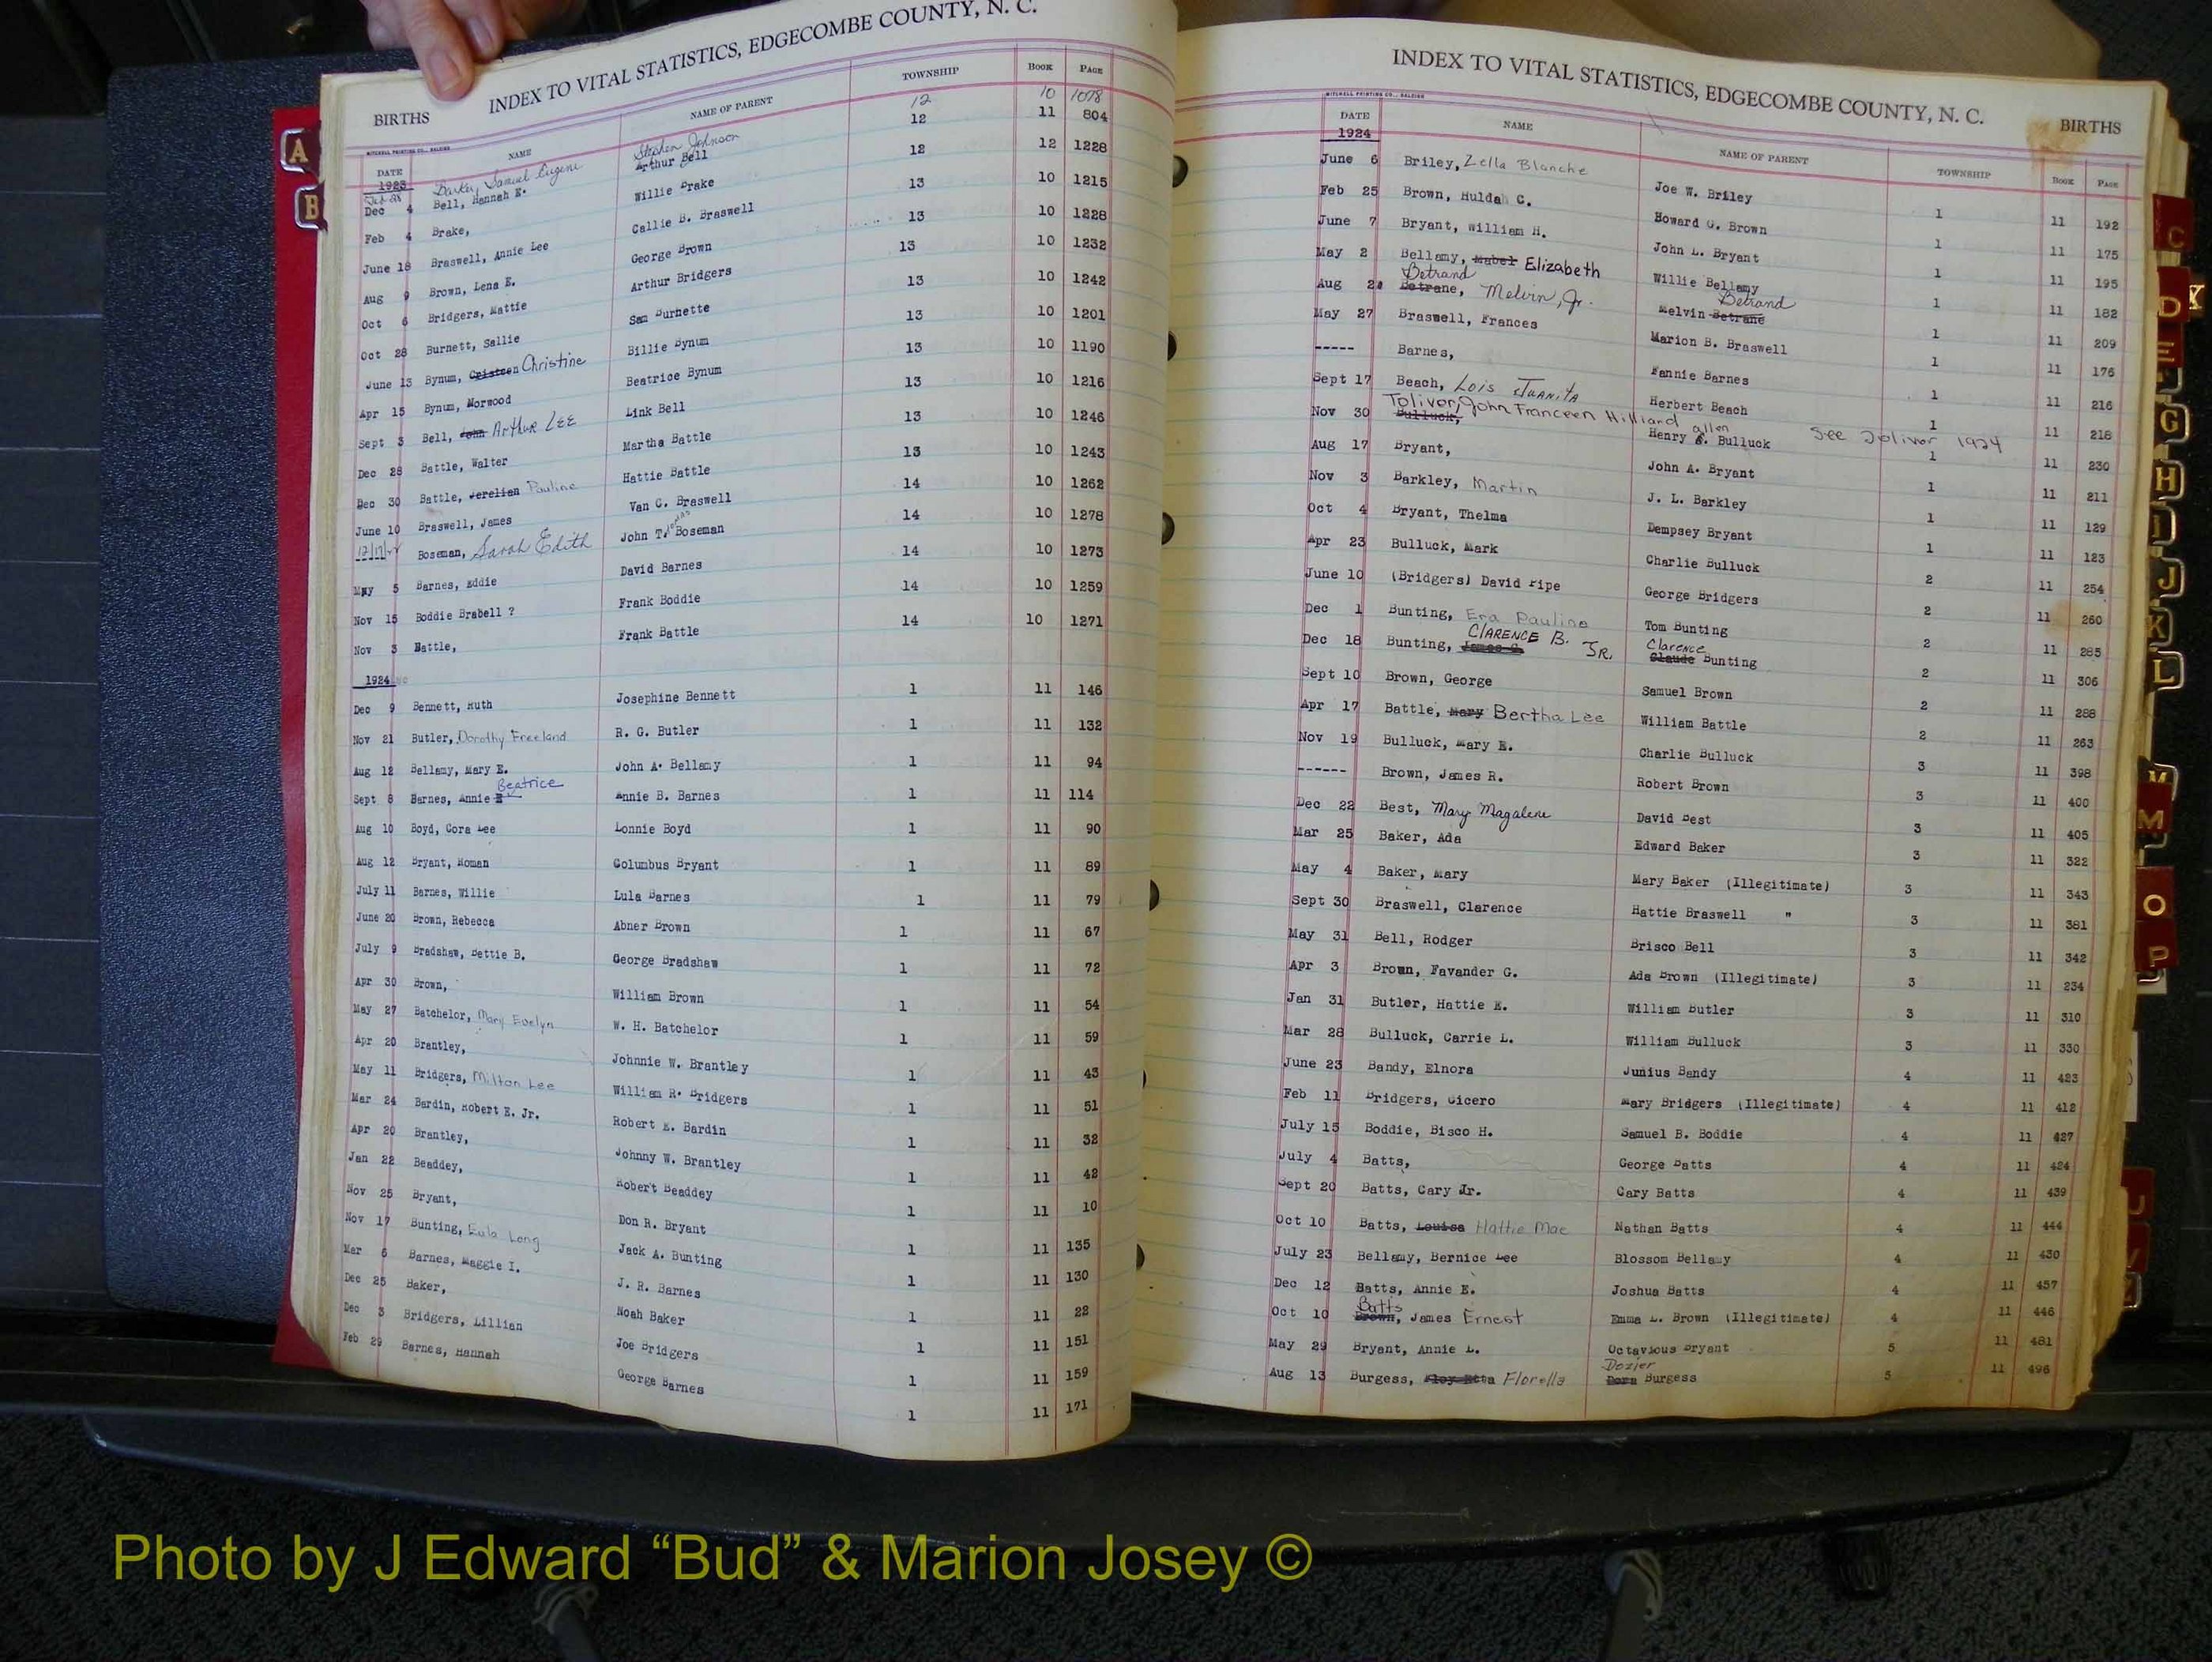 INDEX TO VITAL STATISTICS, EDGECOMBE COUNTY, N. C.
BIRTHS
MITCHELL PRINTING CO., RALEIGH
DATE NAME NAME OF PARENT TOWNSHIP BOOK PAGE
1923
Barker, Samuel Eugene Stephen Johnson 12 10 1078
Dec 4 Bell, Hannah E. Arthur Bell 12 11 804
Feb 4 Brake, Willie Brake 12 12 1228
June 18 Braswell, Annie Lee Callie B. Braswell 13 10 1215
Aug 9 Brown, Lena E. George Brown 13 10 1228
Oct 6 Bridgers, Mattie Arthur Bridgers 13 10 1232
Oct 28 Burnett, Sallie Sam Burnette 13 10 1242
June 13 Bynum, Cristeen Christine Billie Bynum 13 10 1201
Apr 15 Bynum, Norwood Beatrice Bynum 13 10 1190
Sept 3 Bell, John Arthur LEE Link Bell 13 10 1216
Dec 28 Battle, Walter Martha Battle 13 10 1246
Dec 30 Battle, Jerelian Pauline Hattie Battle 13 10 1243
June 10 Braswell, James Van C. Braswell 14 10 1262
Boseman, Sarah Edith John T. Boseman 14 10 1278
May 5 Barnes, Eddie David Barnes 14 10 1273
Nov 15 Boddie Brabell ? Frank Boddie 14 10 1259
Nov 3 Battle, Frank Battle 14 10 1271
1924
Dec 9 Bennett, Ruth Josephine Bennett 1 11 146
Nov 21 Butler, Dorothy Freeland R. G. Butler 1 11 132
Aug 12 Bellamy, Mary E. John A. Bellamy 1 11 94
Sept 8 Barnes, Annie B Beatrice Annie B. Barnes 1 11 114
Aug 10 Boyd, Cora Lee Lonnie Boyd 1 11 90
Aug 12 Bryant, Roman Columbus Bryant 1 11 89
July 11 Barnes, Willie Lula Barnes 1 11 79
June 20 Brown, Rebecca Abner Brown 1 11 67
July 9 Bradshaw, Bettie B. George Bradshaw 1 11 72
Apr 30 Brown, William Brown 1 11 54
May 27 Batchelor, Mary Evelyn W. H. Batchelor 1 11 59
Apr 20 Brantley, Johnnie W. Brantley 1 11 43
May 11 Bridgers, Milton Lee William R. Bridgers 1 11 51
Mar 24 Bardin, Robert E. Jr. Robert E. Bardin 1 11 32
Apr 20 Brantley, Johnny W. Brantley 1 11 42
Jan 22 Beaddey, Robert Beaddey 1 11 10
Nov 25 Bryant, Don R. Bryant 1 11 135
Nov 17 Bunting, Eula Long Jack A. Bunting 1 11 130
Mar 6 Barnes, Maggie I. J. R. Barnes 1 11 22
Dec 25 Baker, Noah Baker 1 11 151
Dec 3 Bridgers, Lillian Joe Bridgers 1 11 159
Feb 29 Barnes, Hannah George Barnes 1 11 171
INDEX TO VITAL STATISTICS, EDGECOMBE COUNTY, N. C.
BIRTHS
MITCHELL PRINTING CO., RALEIGH
DATE NAME NAME OF PARENT TOWNSHIP BOOK PAGE
1924
June 6 Briley, Zella Blanche Joe W. Briley 1 11 192
Feb 25 Brown, Huldah C. Howard G. Brown 1 11 175
June 7 Bryant, William H. John L. Bryant 1 11 195
May 2 Bellamy, Mabel Elizabeth Willie Bellamy 1 11 182
Betrand Betrand
Aug 2 Betrane, Melvin, Jr. Melvin Betrane 1 11 209
May 27 Braswell, Frances Marion B. Braswell 1 11 176
----- Barnes, Fannie Barnes 1 11 216
Sept 17 Beach, Lois Juanita Herbert Beach 1 11 218
Tolivor, John Franceen Hilliard allen See Tolivor 1924
Nov 30 Bulluck, Henry Bulluck 1 11 230
Aug 17 Bryant, John A. Bryant 1 11 211
Nov 3 Barkley, Martin J. L. Barkley 1 11 129
Oct 4 Bryant, Thelma Dempsey Bryant 1 11 123
Apr 23 Bulluck, Mark Charlie Bulluck 2 11 254
June 10 (Bridgers) David Pipe George Bridgers 2 11 260
Dec 1 Bunting, Era Pauline Tom Bunting 2 11 285
CLARENCE B. JR. Clarence
Dec 18 Bunting, Claude Bunting 2 11 306
Sept 10 Brown, George Samuel Brown 2 11 288
Apr 17 Battle, Mary Bertha Lee William Battle 2 11 263
Nov 19 Bulluck, Mary E. Charlie Bulluck 3 11 398
------ Brown, James R. Robert Brown 3 11 400
Dec 22 Best, Mary Magalene David Best 3 11 405
Mar 25 Baker, Ada Edward Baker 3 11 322
May 4 Baker, Mary Mary Baker (Illegitimate) 3 11 343
Sept 30 Braswell, Clarence Hattie Braswell " 3 11 381
May 31 Bell, Rodger Brisco Bell 3 11 342
Apr 3 Brown, Favander G. Ada Brown (Illegitimate) 3 11 234
Jan 31 Butler, Hattie E. William Butler 3 11 310
Mar 28 Bulluck, Carrie L. William Bulluck 3 11 330
June 23 Bandy, Elnora Junius Bandy 4 11 423
Feb 11 Bridgers, Cicero Mary Bridgers (Illegitimate) 4 11 412
July 15 Boddie, Bisco H. Samuel B. Boddie 4 11 427
July 4 Batts, George Batts 4 11 424
Sept 20 Batts, Cary Jr. Cary Batts 4 11 439
Oct 10 Batts, Louisa Hattie Mae Nathan Batts 4 11 444
July 23 Bellamy, Bernice Lee Blossom Bellamy 4 11 430
Dec 12 Batts, Annie E. Joshua Batts 4 11 457
Batts
Oct 10 Brown, James Ernest Emma L. Brown (Illegitimate) 4 11 446
May 29 Bryant, Annie L. Octavious Bryant 5 11 481
Dozier
Aug 13 Burgess, Florella Dora Burgess 5 11 496
A
B
C
D
E
G
H
I
J
K
L
M
M
O
P
U
V
Photo by J Edward “Bud” & Marion Josey ©